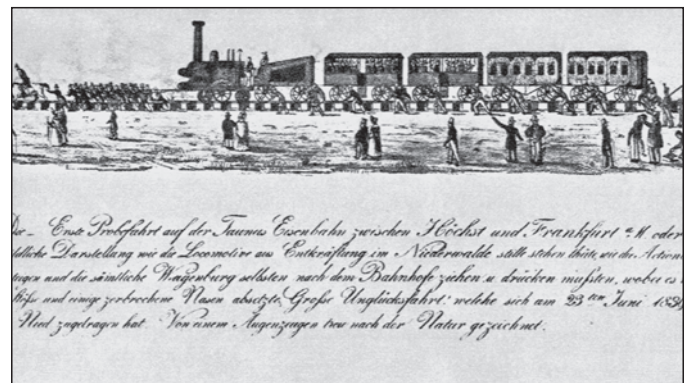 Die - Erste Probefahrt auf der Taunus Eisenbahn zwischen Höchst und Frankfurt a. M. oder
Darstellung wie die Locomotive aus Entkräftung im Niederwalde stille stehen thäte, wie die Action
steigen und die sämtliche Wagenburg selbsten nach dem Bahnhofe ziehen u. drücken mußten, wobei es
und einige zerbrochene Nasen absetzte, Große Unglücksfahrt, welche sich am 23ten Juni 1839
Nied zugetragen hat. Von einem Augenzeugen treu nach der Natur gezeichnet.